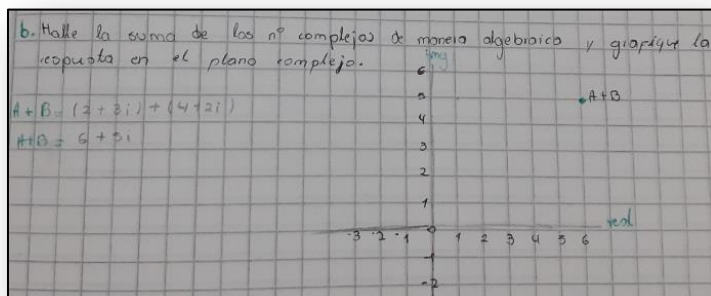 b. Halle la suma de los nº complejos de manera algebraica y grafique la
repuesta en el plano complejo.
img
6
A + B = (2 + 3i) + (4 + 2i)
5
A+B
4
A+B = 6 + 5i
3
2
1
real
-3 -2 -1 0 1 2 3 4 5 6
-1
-2